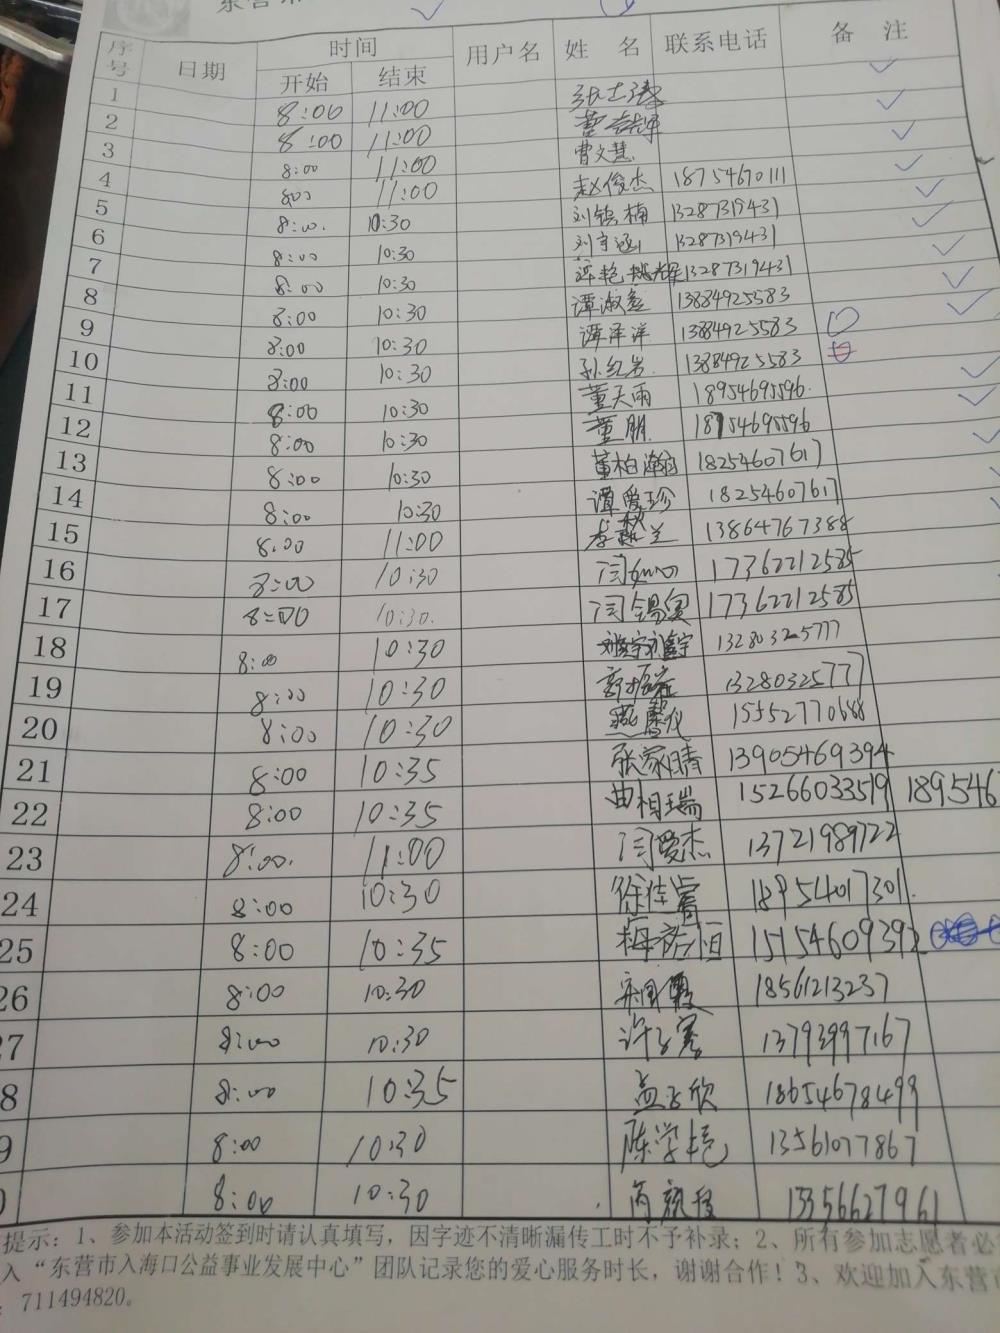 东营市
序号 日期 时间 用户名 姓 名 联系电话 备 注
开始 结束
1 8:00 11:00
2 8:00 11:00
3 8:00 11:00 曹文慧
4 8:00 11:00 赵俊杰 18754670111
5 8:00. 10:30 刘锦楠 13287319431
6 8:00 10:30 刘宇涵 13287319431
7 8:00 10:30 13287319431
8 8:00 10:30 谭淑鑫 13884925583
9 8:00 10:30 谭泽洋 13884925583
10 8:00 10:30 孙红岩 13884925583
11 8:00 10:30 董天雨 18954695596
12 8:00 10:30 董朋 18954695596
13 8:00 10:30 董柏瀚 18254607617
14 8:00 10:30 谭爱珍 18254607617
15 8:00 11:00 13864767388
16 8:00 10:30 闫如心 17362212585
17 8:00 10:30. 闫锡寅 17362212585
18 8:00 10:30 13280325777
19 8:00 10:30 13280325777
20 8:00 10:30 15552770688
21 8:00 10:35 张家晴 13905469394
22 8:00 10:35 曲相瑞 15266033519 189546
23 8:00. 11:00 闫爱杰 13721989722
24 8:00 10:30 徐佳睿 18954017301.
25 8:00 10:35 15154609392
26 8:00 10:30 18561213237
7 8:00 10:30 13793997167
8 8:00 10:35 孟子欣 18654678499
9 8:00 10:30 陈学艳 13561077867
0 8:00 10:30 13356627961
提示：1、参加本活动签到时请认真填写，因字迹不清晰漏传工时不予补录；2、所有参加志愿者必
入“东营市入海口公益事业发展中心”团队记录您的爱心服务时长，谢谢合作！3、欢迎加入东营市
：711494820。